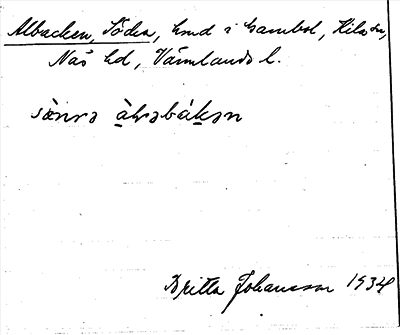 Albacken, Södra, hmd i Gambol, Kila sn,
Näs hd, Värmlands l.
sö̀nrə àlvəbákən
Britta Johansson 1934